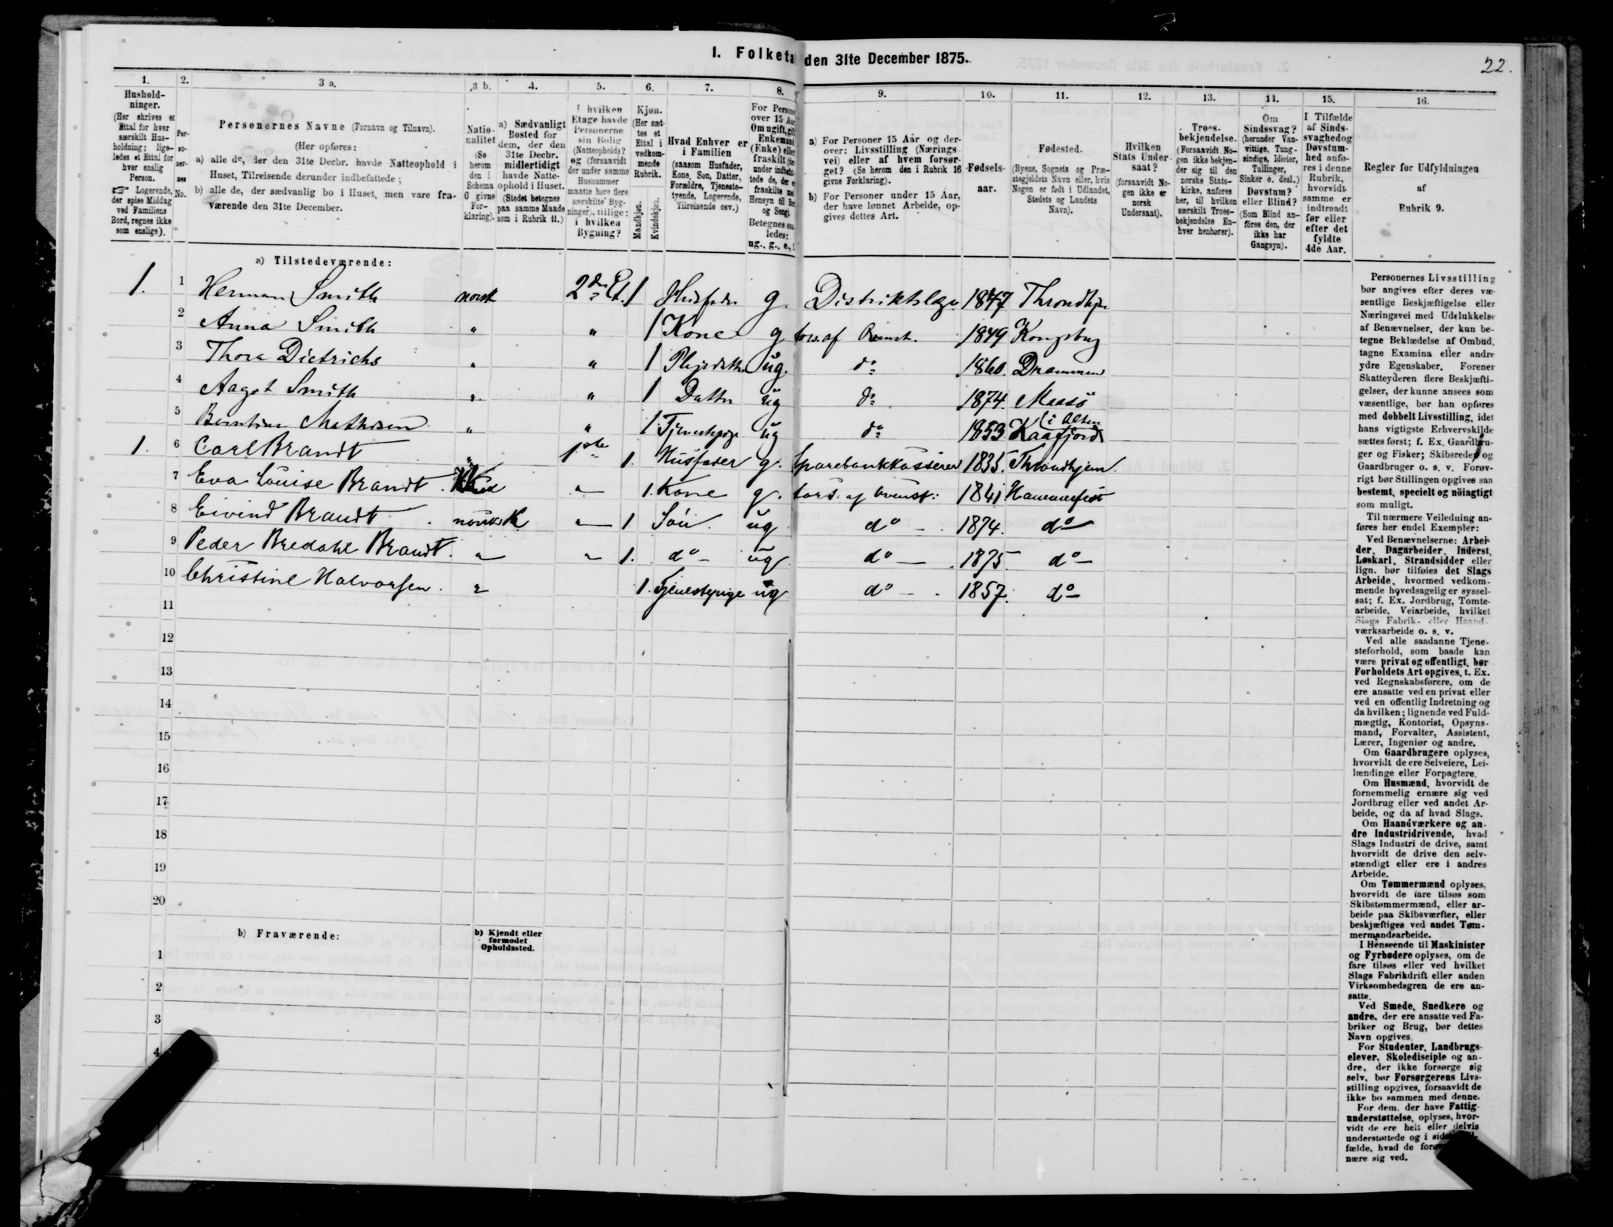 I. Folketal den 31te December 1875.
22.
1.
Hushold-
ninger.
(Her skrives et
Ettal for hver
særskilt Hus-
holdning; lige-
ledes et Ettal for
hver enslig
Person.
Logerende,
der spise Middag
ved Familiens
Bord, regnes ikke
som enslige).
2.
Per-
so-
ner-
nes
No.
3 a.
Personernes Navne (Fornavn og Tilnavn).
(Her opføres:
a) alle de, der den 31te Decbr. havde Natteophold i
Huset, Tilreisende derunder indbefattede;
b) alle de, der sædvanlig bo i Huset, men vare fra-
værende den 31te December.
3 b.
Natio-
nalitet
(Se
herom
den i
Schema
6 givne
For-
klaring).
4.
a) Sædvanligt
Bosted for
dem, der den
31te Decbr.
midlertidigt
havde Natte-
ophold i Huset.
(Stedet betegnes
paa samme Maade
som i Rubrik 11.)
5.
I hvilken
Etage havde
Personerne
sin Bolig
(Natteophold)?
og (forsaavidt
der under samme
Husnummer
maatte høre flere
særskilte Byg-
ninger), tillige:
i hvilken
Bygning?
6.
Kjøn.
(Her sæt-
tes et
Ettal i
vedkom-
mende
Rubrik.
Mandkjøn.
Kvindekjøn.
7.
Hvad Enhver er
i Familien
(saasom Husfader,
Kone, Søn, Datter,
Forældre, Tjeneste-
tyende, Logerende,
Tilreisende osv.)
8.
For Personer
over 15 Aar:
Om ugift, gift,
Enkemand
(Enke) eller
fraskilt
9.
a) For Personer 15 Aar og der-
over: Livsstilling (Nærings-
vei) eller af hvem forsør-
get? (Se herom den i Rubrik 16
givne Forklaring).
b) For Personer under 15 Aar,
der have lønnet Arbeide, op-
gives dettes Art.
10.
Fødsels-
aar.
11.
Fødested.
(Byens, Sognets og Præ-
stegjeldets Navn eller, hvis
Nogen er født i Udlandet,
Stedets og Landets
Navn).
12.
Hvilken
Stats Under-
saat?
(forsaavidt No-
gen ikke er
norsk
Undersaat).
13.
Troes-
bekjendelse.
(Forsaavidt No-
gen ikke bekjen-
der sig til den
norske Stats-
kirke, anføres
her, til hvilken
særskilt Troes-
bekjendelse En-
hver henhører).
14.
Om
Sindssvag?
(herunder Van-
vittige, Tung-
sindige, Idioter,
Tullinger,
Sinker o. desl.)
Døvstum?
eller Blind?
(Som Blind an-
føres den, der
ikke har
Gangsyn).
15.
I Tilfælde
af Sinds-
svaghed og
Døvstum-
hed anfø-
res i denne
Rubrik,
hvorvidt
samme er
indtraadt
før eller
efter det
fyldte
4de Aar.
16.
Regler for Udfyldningen
af
Rubrik 9.
a) Tilstedeværende:
1. 1 Herman Smith norsk 2den Et. 1 Husfader g. Distriktslæge 1847 Throndhjem
2 Anna Smith " " 1 Kone g fors. af Ovenst. 1849 Kongsberg
3 Thora Dietrichs " " 1 Plejedatter ug. do 1860. Drammen
4 Aagot Smith " " 1 Datter ug do 1874. Maasø
5 Berntine Mathisen " " 1 Tjenestepige ug do 1853 Kaafjord (i Alten
1. 6 Carl Brandt " 1ste 1. Husfader g. Sparebankkasserer 1835. Throndhjem
7 Eva Louise Brandt . " 1. Kone g. fors. af Ovenst: 1841 Hammerfest
8 Eivind Brandt . norsk " 1 Søn . ug do — 1874. do
9 Peder Bredahl Brandt . " " 1. do ug do — 1875 do
10 Christine Halvorsen . " 1. Tjenestepige ug do — 1857. do
11
12
13
14
15
16
17
18
19
20
b) Fraværende:
b) Kjendt eller
formodet
Opholdssted.
1
2
3
4
Personernes Livsstilling
bør angives efter deres væ-
sentlige Beskjæftigelse eller
Næringsvei med Udelukkelse
af Benævnelser, der kun be-
tegne Beklædelse af Ombud,
tagne Examina eller andre
ydre Egenskaber. Forener
Skatteyderen flere Beskjæfti-
gelser, der kunne ansees som
væsentlige, bør han opføres
med dobbelt Livsstilling, idet
hans vigtigste Erhvervskilde
sættes først; f. Ex. Gaardbru-
ger og Fisker; Skibsreder og
Gaardbruger o. s. v. Forøv-
rigt bør Stillingen opgives saa
bestemt, specielt og nøiagtigt
som muligt.
Til nærmere Veiledning an-
føres her endel Exempler:
Ved Benævnelserne: Arbei-
der, Dagarbeider, Inderst,
Løskarl, Strandsidder eller
lign. bør tilføies det Slags
Arbeide, hvormed vedkom-
mende hovedsagelig er syssel-
sat; f. Ex. Jordbrug, Tomte-
arbeide, Veiarbeide, hvilket
Slags Fabrik- eller Haand-
værksarbeide o. s. v.
Ved alle saadanne Tjene-
steforhold, som baade kan
være privat og offentligt, bør
Forholdets Art opgives, t. Ex.
ved Regnskabsførere, om de
ere ansatte ved en privat eller
ved en offentlig Indretning og
da hvilken; lignende ved Fuld-
mægtig, Kontorist, Opsyns-
mand, Forvalter, Assistent,
Lærer, Ingeniør og andre.
Om Gaardbrugere oplyses,
hvorvidt de ere Selveiere, Lei-
lændinge eller Forpagtere.
Om Husmænd, hvorvidt de
fornemmelig ernære sig ved
Jordbrug eller ved andet Ar-
beide, og da af hvad Slags.
Om Haandværkere og an-
dre Industridrivende, hvad
Slags Industri de drive, samt
hvorvidt de drive den selv-
stændigt eller ere i andres
Arbeide.
Om Tømmermænd oplyses,
hvorvidt de fare tilsøs som
Skibstømmermænd, eller ar-
beide paa Skibsværfter, eller
beskjæftiges ved andet Tøm-
mermandsarbeide.
I Henseende til Maskinister
og Fyrbødere oplyses, om de
fare tilsøs eller ved hvilket
Slags Fabrikdrift eller anden
Virksomhedsgren de ere an-
satte.
Ved Smede, Snedkere og
andre, der ere ansatte ved Fa-
briker og Brug, bør dettes
Navn opgives.
For Studenter, Landbrugs-
elever, Skoledisciple og an-
dre, der ikke forsørge sig
selv, bør Forsørgerens Livs-
stilling opgives, forsaavidt de
ikke bo sammen med denne.
For dem, der have Fattig-
understøttelse, oplyses, hvor-
vidt de ere helt eller delvis
understøttede og i
fælde, hvad de
nære sig ved.